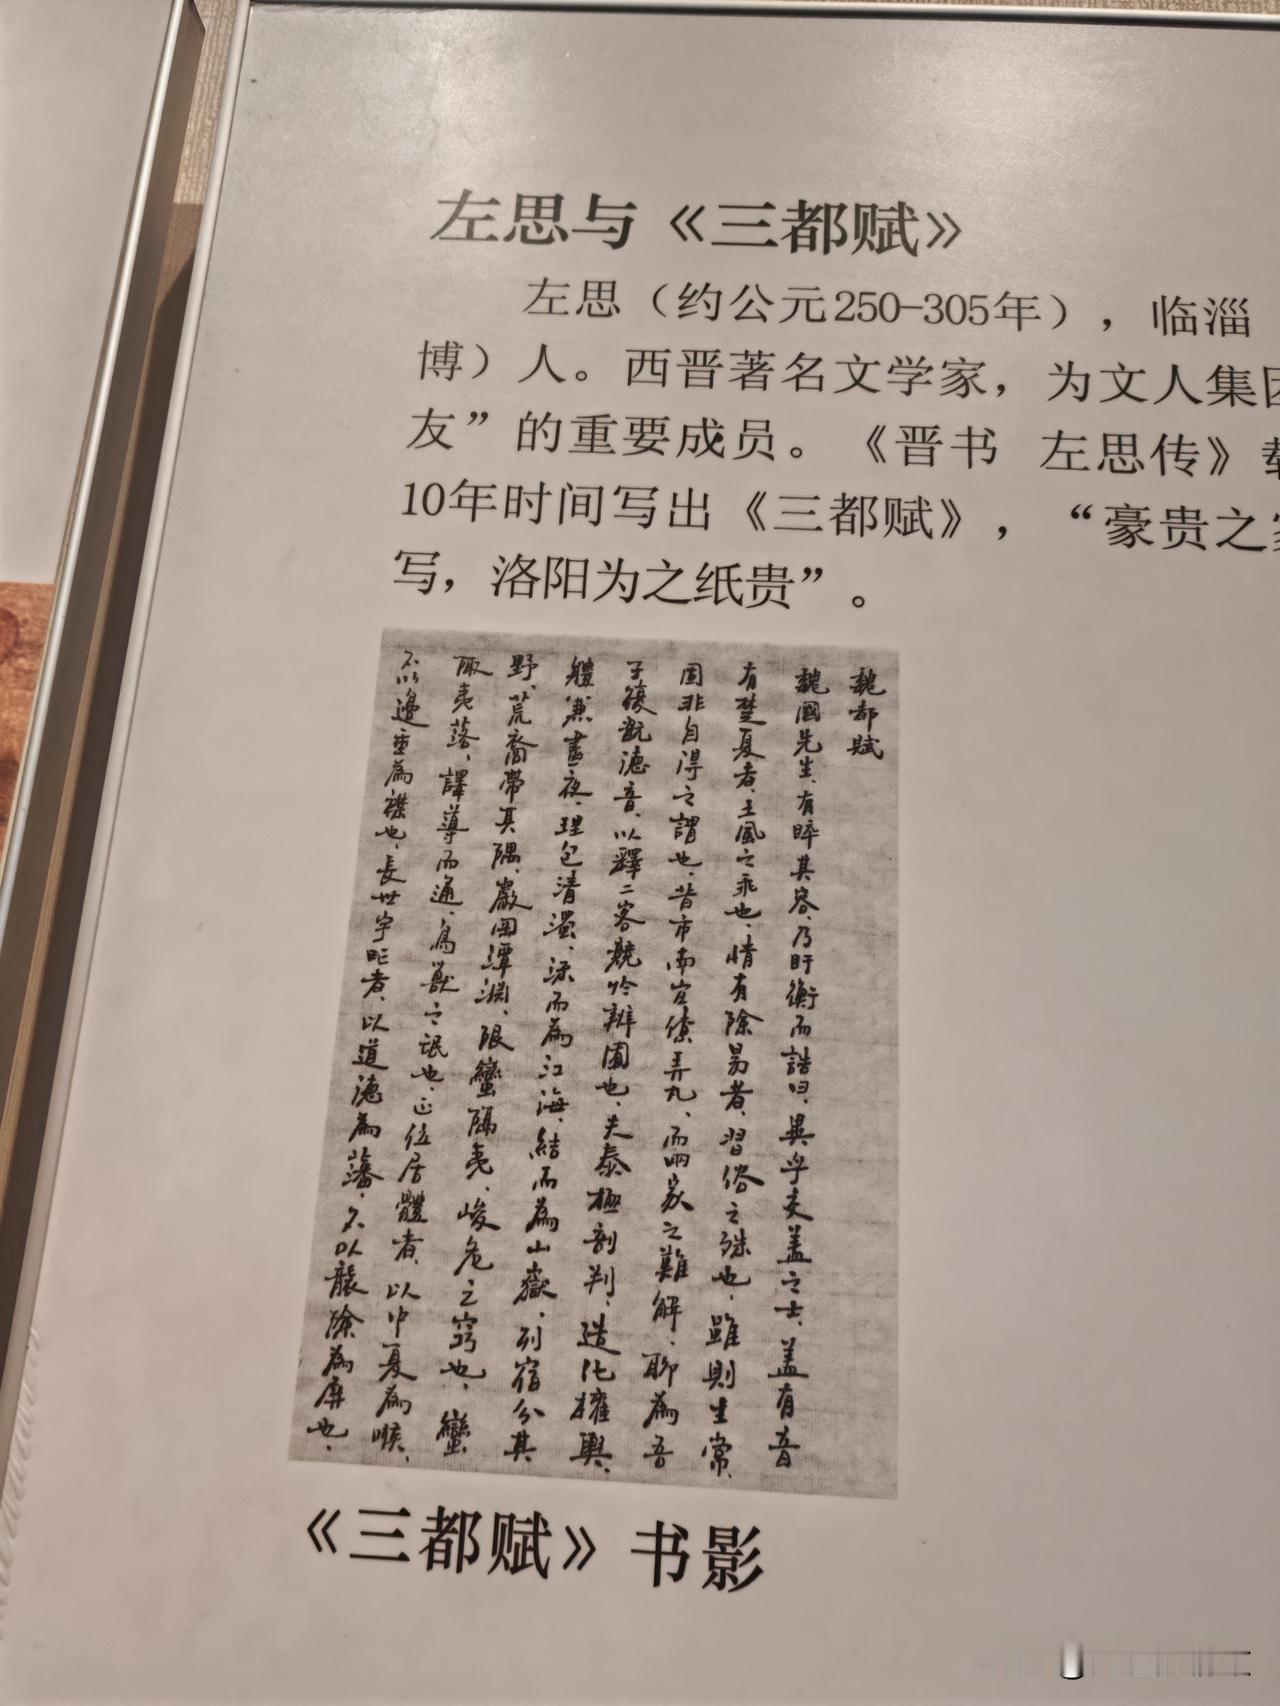 左思与《三都赋》
左思（约公元250-305年），临淄
博）人。西晋著名文学家，为文人集团
友”的重要成员。《晋书 左思传》载
10年时间写出《三都赋》，“豪贵之家
写，洛阳为之纸贵”。
魏都赋
魏國先生、有睟其容、乃盱衡而誥曰、異乎交益之士、蓋有音
有楚夏者、土風之乖也、情有險易者、習俗之殊也、雖則生常、
固非自得之謂也、昔市南宜僚弄丸、而兩家之難解、聊為吾
子復翫德音、以釋二客競於辯囿也、夫泰極剖判、造化權輿、
體兼晝夜、理包清濁、流而為江海、結而為山嶽、列宿分其
野、荒裔帶其隅、巖岡潭淵、限蠻隔夷、峻危之竅也、蠻
陬夷落、譯導而通、鳥獸之氓也、正位居體者、以中夏為喉、
不以邊垂為襟也、長世字甿者、以道德為藩、不以襲險為屏也、
《三都赋》书影